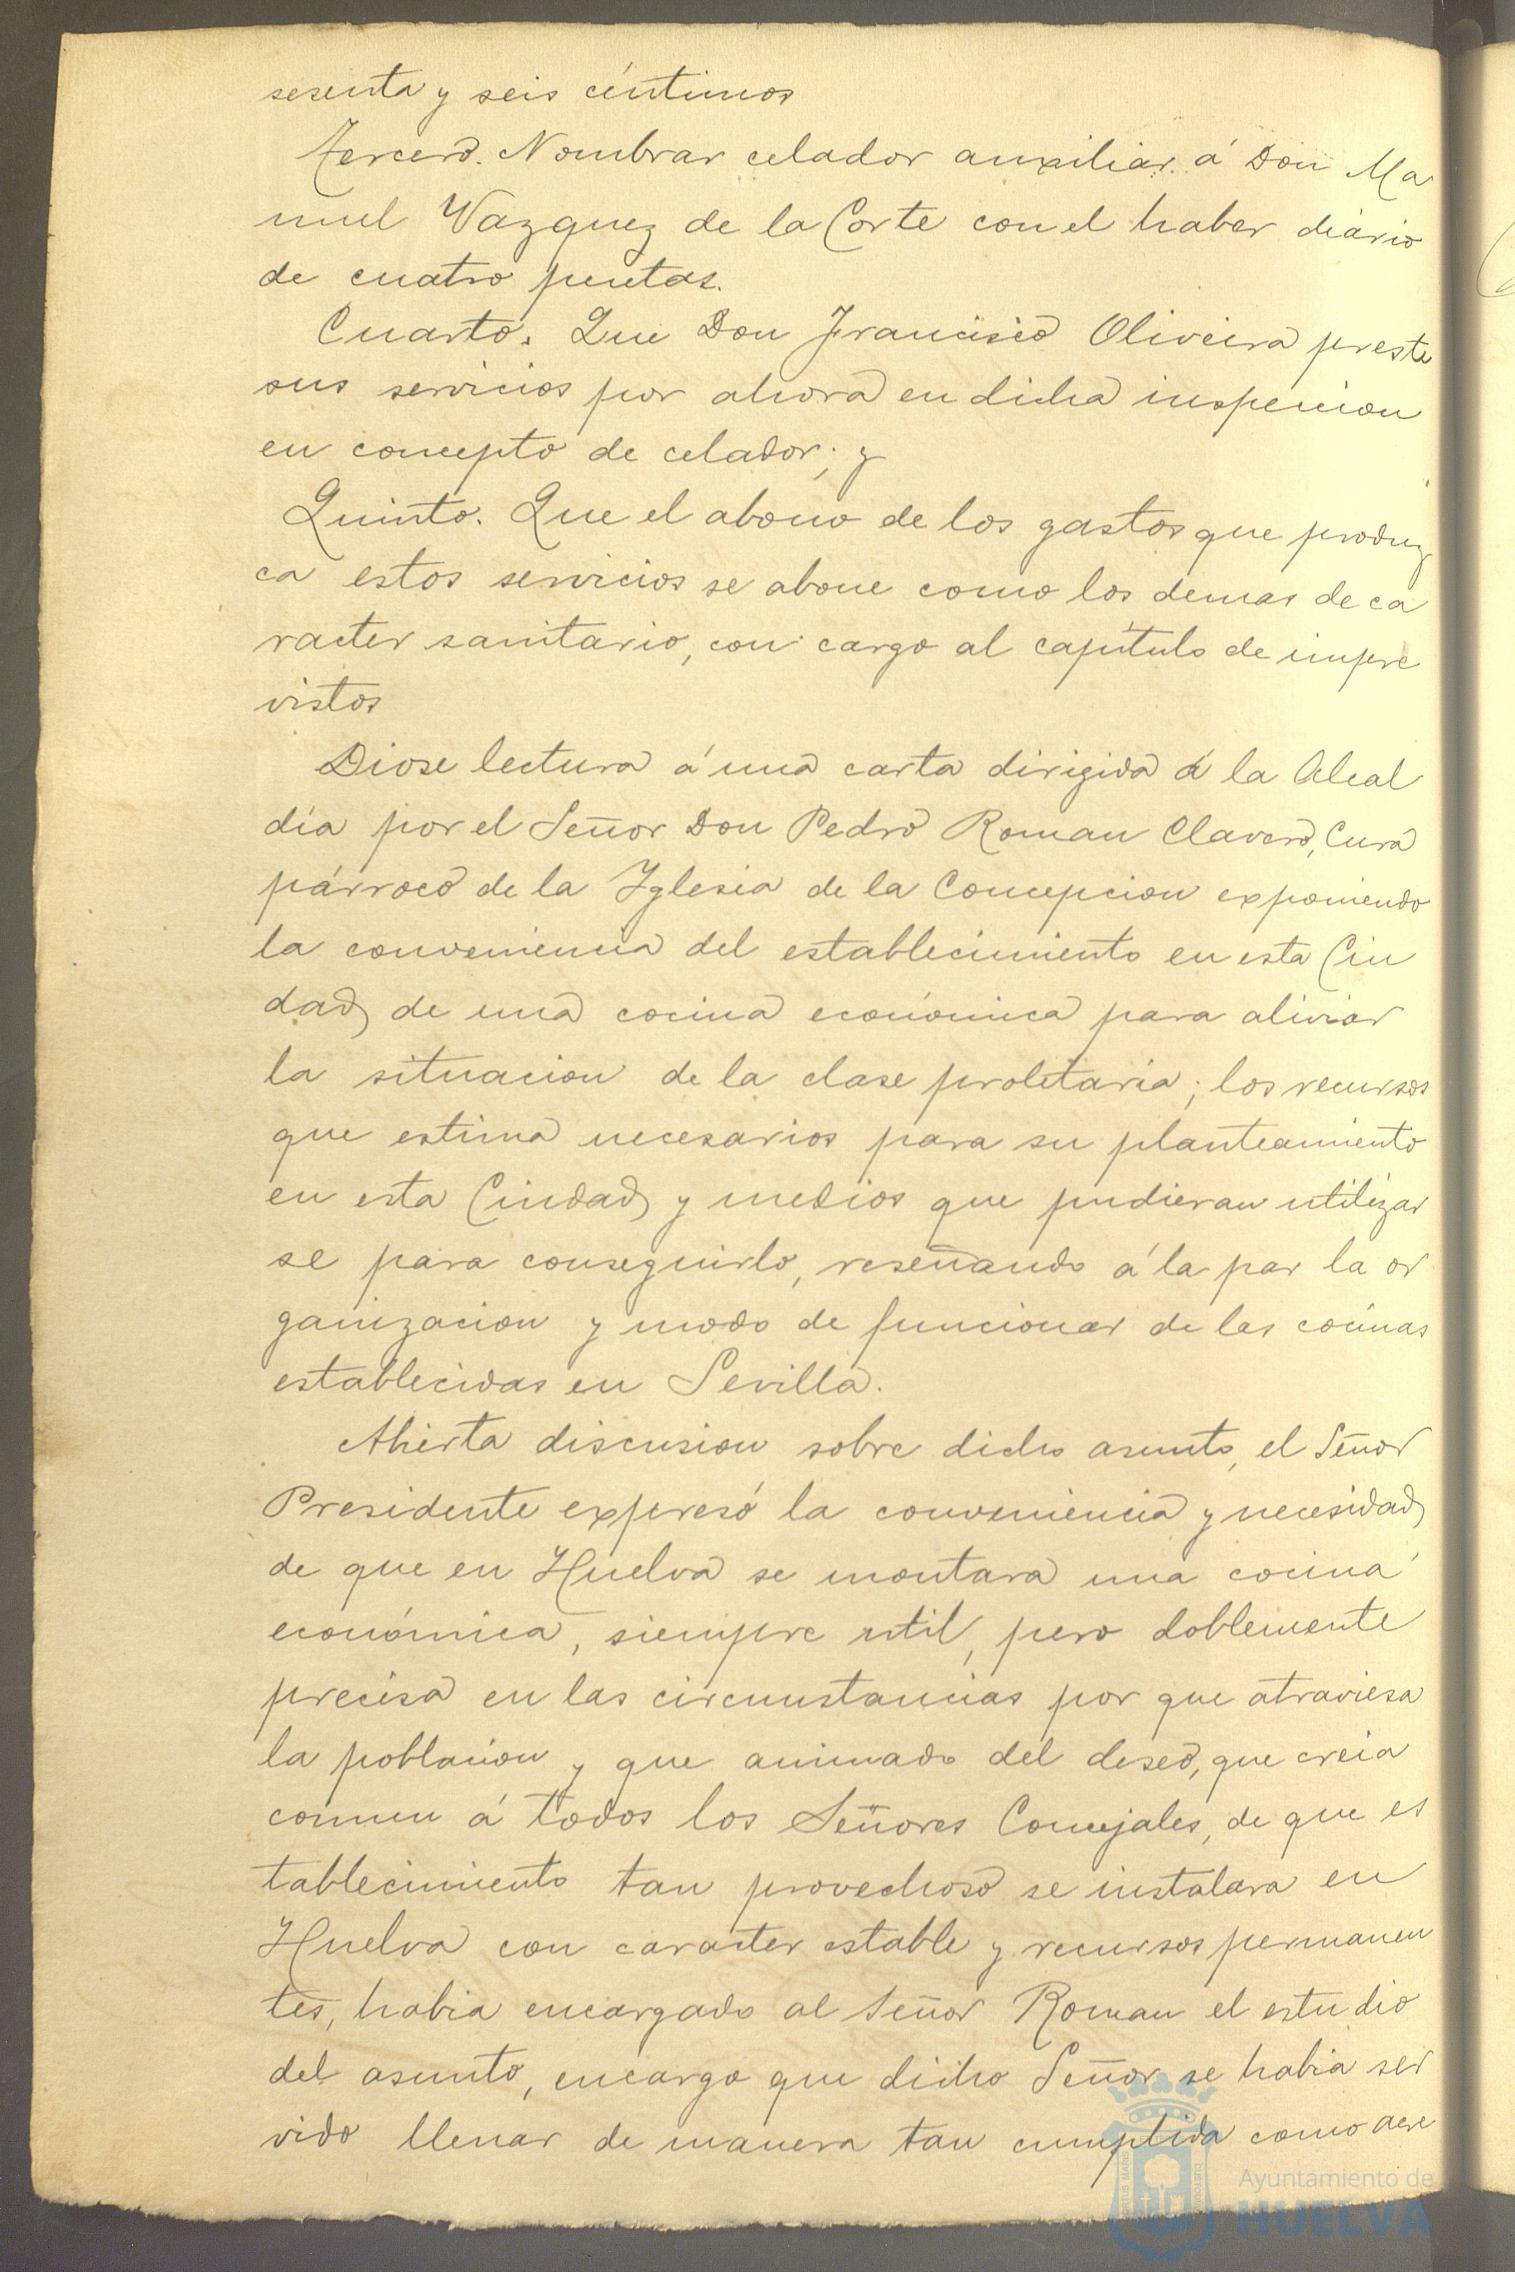 sesenta y seis céntimos
Tercero. Nombrar celador auxiliar á Don Ma
nuel Vazquez de la Corte con el haber diário
de cuatro pesetas.
Cuarto. Que Don Francisco Oliveira preste
sus servicios por ahora en dicha inspeccion
en concepto de celador; y
Quinto. Que el abono de los gastos que produz
ca estos servicios se abone como los demas de ca
racter sanitario, con cargo al capítulo de impre
vistos
Diose lectura á una carta dirigida á la Alcal
día por el Señor Don Pedro Roman Clavero, Cura
párroco de la Iglesia de la Concepcion exponiendo
la conveniencia del establecimiento en esta Ciu
dad de una cocina económica para aliviar
la situacion de la clase proletaria; los recursos
que estima necesarios para su planteamiento
en esta Ciudad y medios que pudieran utilizar
se para conseguirlo, reseñando á la par la or
ganizacion y modo de funcionar de las cocinas
establecidas en Sevilla.
Abierta discusion sobre dicho asunto, el Señor
Presidente expresó la conveniencia y necesidad
de que en Huelva se montara una cocina
económica, siempre util, pero doblemente
precisa en las circunstancias por que atraviesa
la poblacion y que animado del deseo, que creia
comun á todos los Señores Concejales, de que es
tablecimiento tan provechoso se instalara en
Huelva con caracter estable y recursos permanen
tes, habia encargado al Señor Roman el estudio
del asunto, encargo que dicho Señor se habia ser
vido llenar de manera tan cumplida como acre
Ayuntamiento de
HUELVA